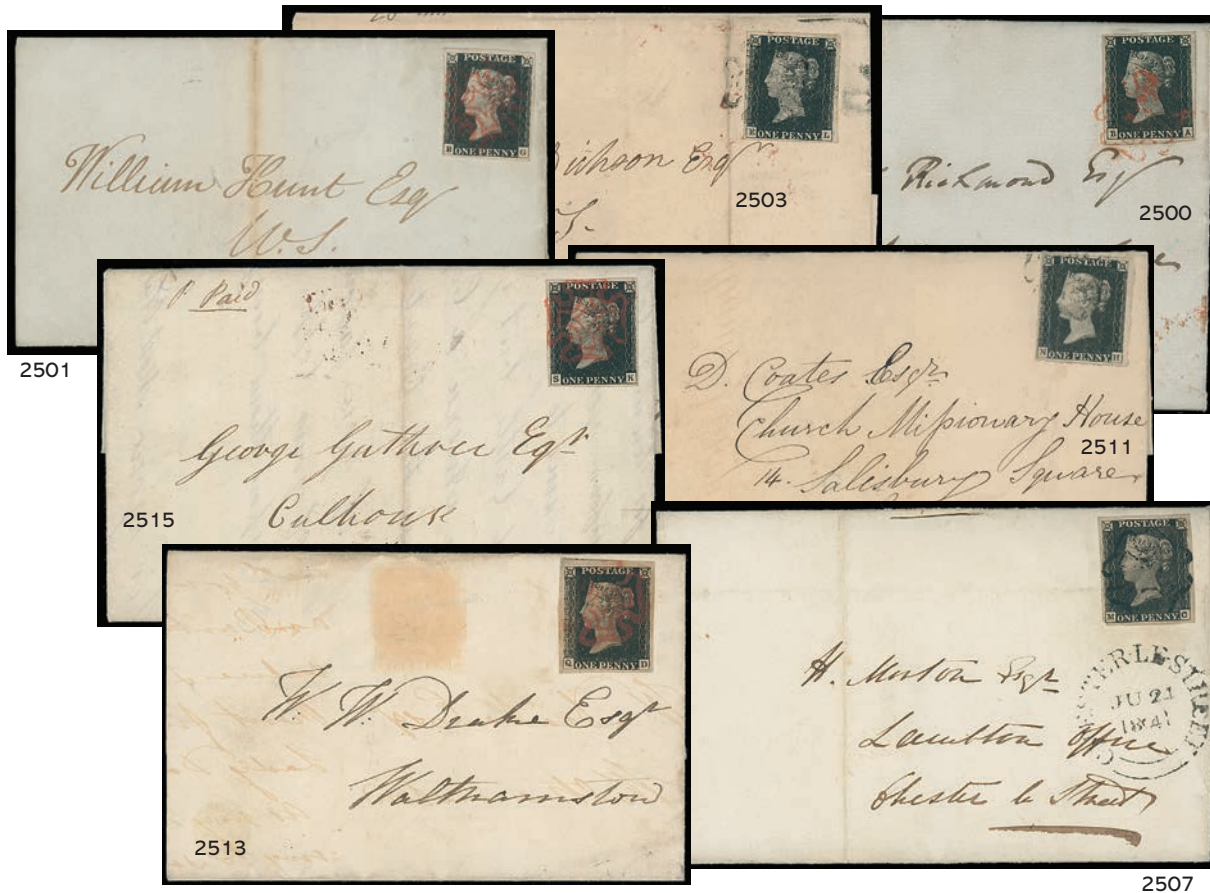 POSTAGE
B G
ONE PENNY
William Hunt Esq
W.S.
2501
POSTAGE
E L
ONE PENNY
Esqr
2503
POSTAGE
B A
ONE PENNY
Richmond Esq
2500
P Paid
POSTAGE
S K
ONE PENNY
George Guthrie Eqr
Culhouse
2515
POSTAGE
N H
ONE PENNY
D. Coates Esqr
Church Missionary House
14. Salisbury Square
2511
POSTAGE
Q D
ONE PENNY
W. W. Drake Esqr
Walthamstow
2513
POSTAGE
M C
ONE PENNY
CHESTER-LE-STREET
JU 21
1841
H. Morton Esqr
Lambton Office
Chester le Street
2507